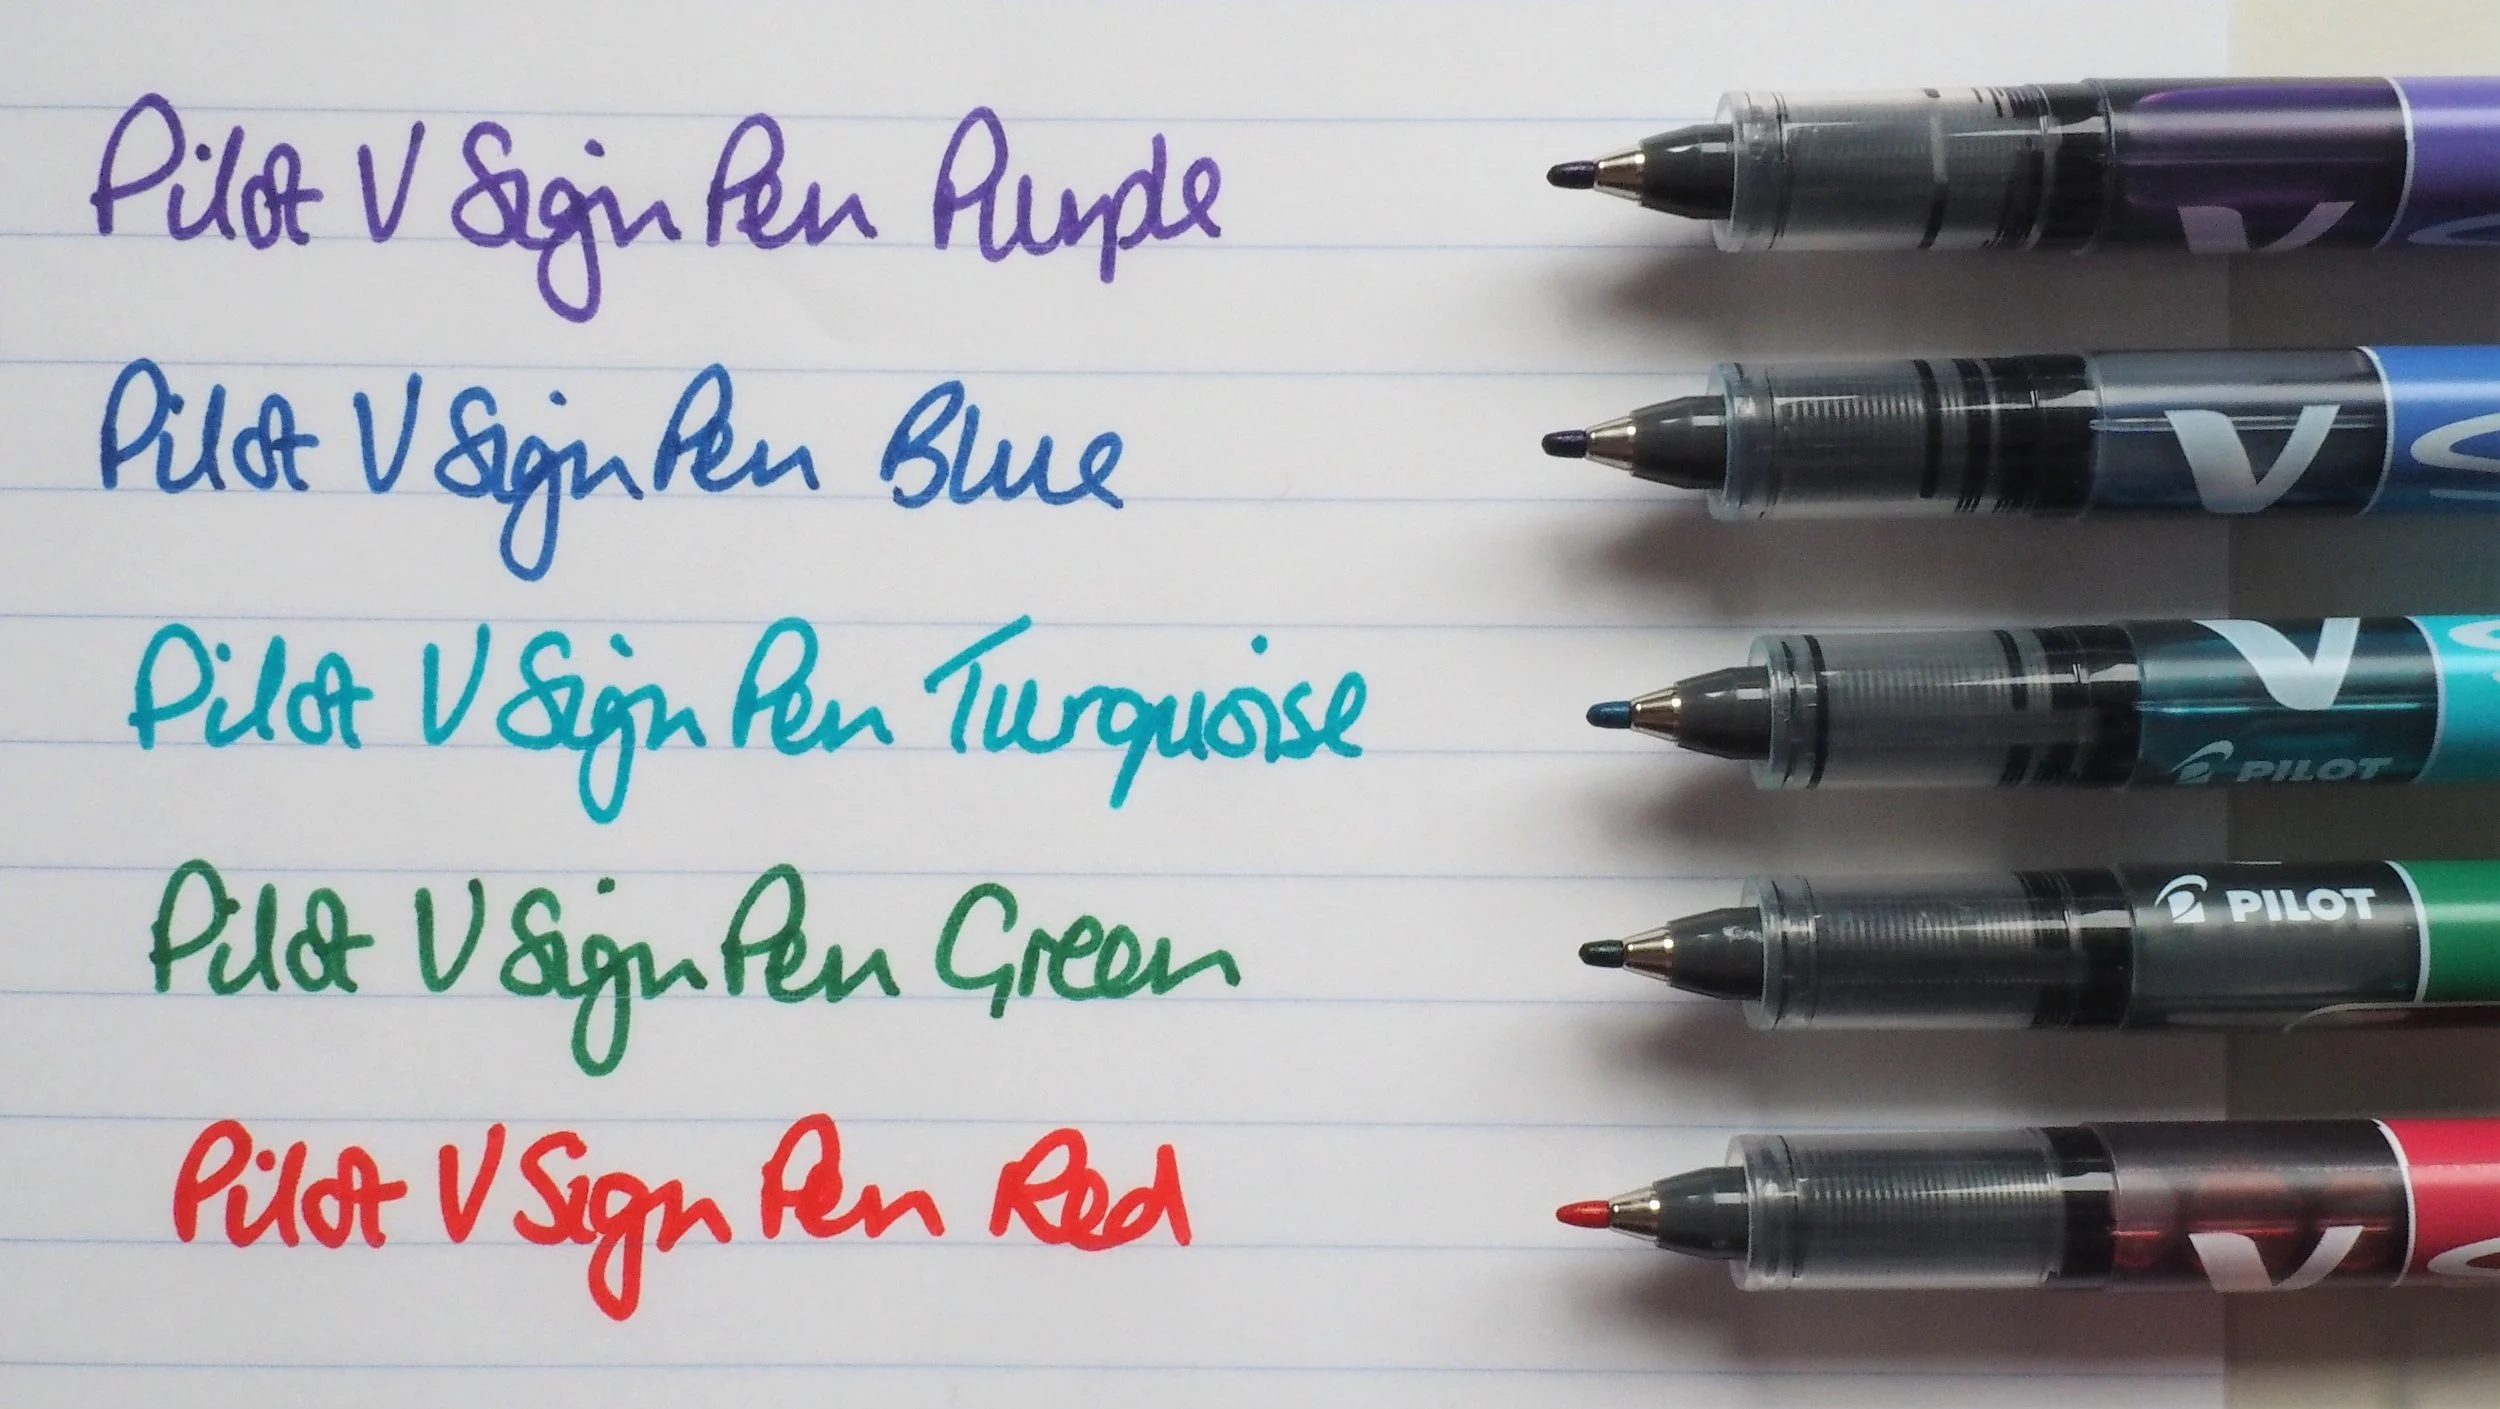 Pilot V Sign Pen Purple
V
Pilot V Sign Pen Blue
V
Pilot V Sign Pen Turquoise
V
PILOT
Pilot V Sign Pen Green
PILOT
Pilot V Sign Pen Red
V